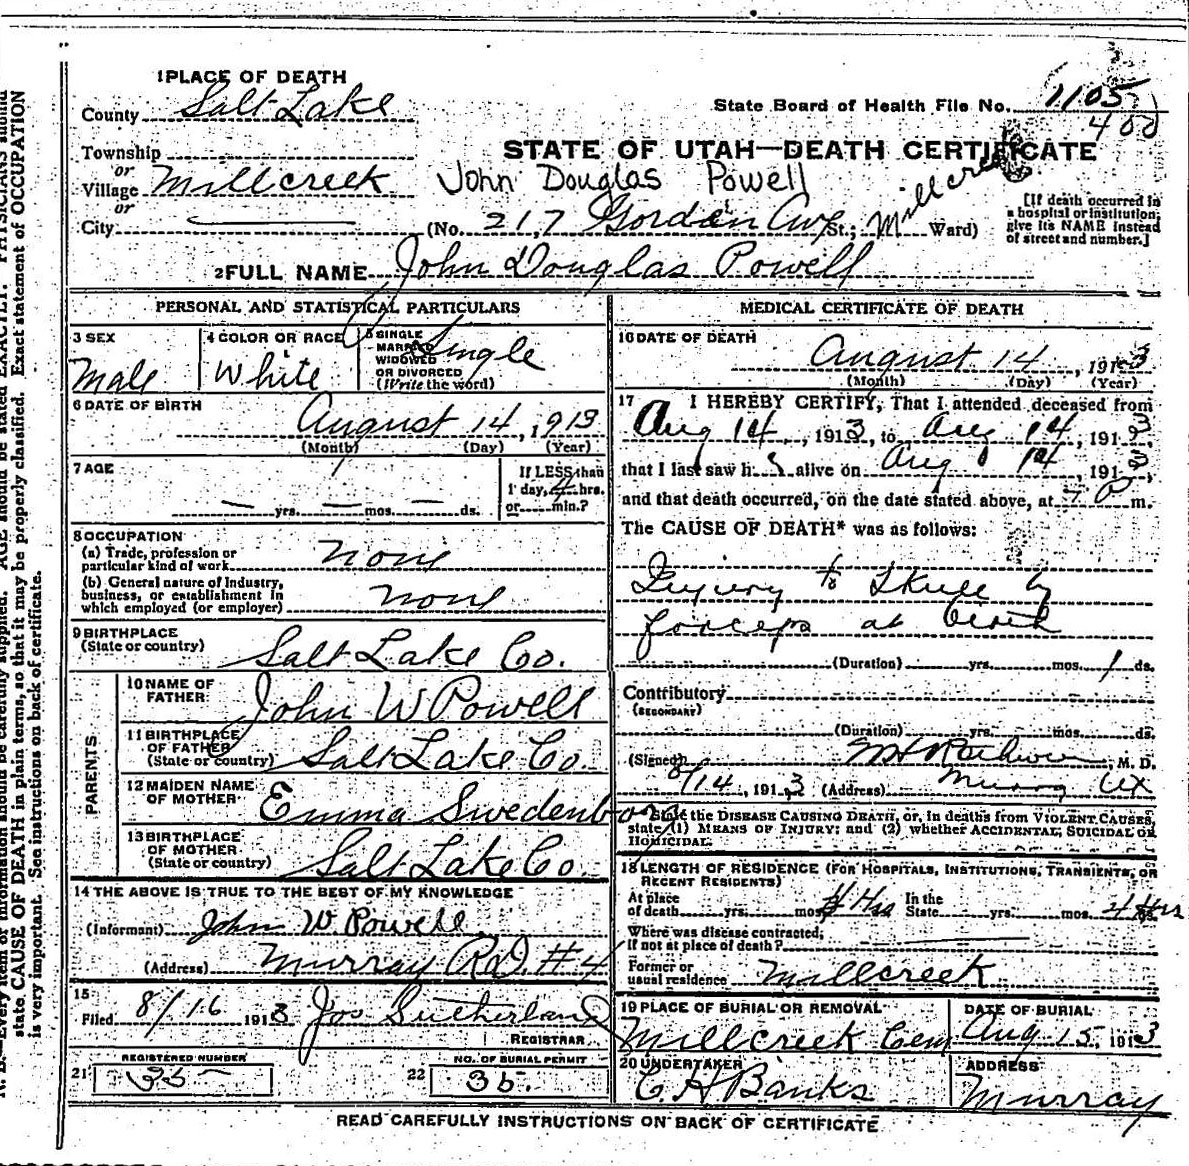 1 PLACE OF DEATH
County Salt Lake
State Board of Health File No. 1105
400
Township
or
Village Millcreek
or
City
STATE OF UTAH—DEATH CERTIFICATE
John Douglas Powell
(No. 217 Gordon Ave St.; Millcreek Ward)
[If death occurred in
a hospital or institution,
give its NAME instead
of street and number.]
2 FULL NAME John Douglas Powell
PERSONAL AND STATISTICAL PARTICULARS
3 SEX
Male
4 COLOR OR RACE
White
5 SINGLE
MARRIED
WIDOWED
OR DIVORCED
(Write the word)
Single
6 DATE OF BIRTH
August 14, 1913
(Month) (Day) (Year)
7 AGE
— yrs. — mos. — ds.
If LESS than
1 day, 4 hrs.
or min.?
8 OCCUPATION
(a) Trade, profession or
particular kind of work none
(b) General nature of Industry,
business, or establishment in
which employed (or employer) none
9 BIRTHPLACE
(State or country) Salt Lake Co.
PARENTS
10 NAME OF
FATHER John W Powell
11 BIRTHPLACE
OF FATHER
(State or country) Salt Lake Co.
12 MAIDEN NAME
OF MOTHER Emma Swedenborg
13 BIRTHPLACE
OF MOTHER
(State or country) Salt Lake Co.
14 THE ABOVE IS TRUE TO THE BEST OF MY KNOWLEDGE
(Informant) John W Powell
(Address) Murray R.D. #4
15
Filed 8/16 1913 Jos Sutherland
REGISTRAR
REGISTERED NUMBER
21 35
NO. OF BURIAL PERMIT
22 35.
MEDICAL CERTIFICATE OF DEATH
16 DATE OF DEATH
August 14, 1913
(Month) (Day) (Year)
17 I HEREBY CERTIFY, That I attended deceased from
Aug 14, 1913, to Aug 14, 1913
that I last saw h alive on Aug 14, 1913
and that death occurred, on the date stated above, at m.
The CAUSE OF DEATH* was as follows:
Injury to Skull by
forceps at birth
(Duration) yrs. mos. 1 ds.
Contributory
(SECONDARY)
(Duration) yrs. mos. ds.
(Signed) M. D.
8/14, 1913 (Address) Murray Ut
State the DISEASE CAUSING DEATH, or, in deaths from VIOLENT CAUSES,
state (1) MEANS OF INJURY; and (2) whether ACCIDENTAL, SUICIDAL or
HOMICIDAL.
18 LENGTH OF RESIDENCE (FOR HOSPITALS, INSTITUTIONS, TRANSIENTS, OR
RECENT RESIDENTS)
At place
of death yrs. mos. 4 Hrs In the
State yrs. mos. 4 Hrs
Where was disease contracted,
if not at place of death?
Former or
usual residence Millcreek
19 PLACE OF BURIAL OR REMOVAL
Millcreek Cem
DATE OF BURIAL
Aug 15, 1913
20 UNDERTAKER
C H Banks
ADDRESS
Murray
READ CAREFULLY INSTRUCTIONS ON BACK OF CERTIFICATE
state CAUSE OF DEATH in plain terms, so that it may be properly classified. Exact statement of OCCUPATION
is very important. See instructions on back of certificate.